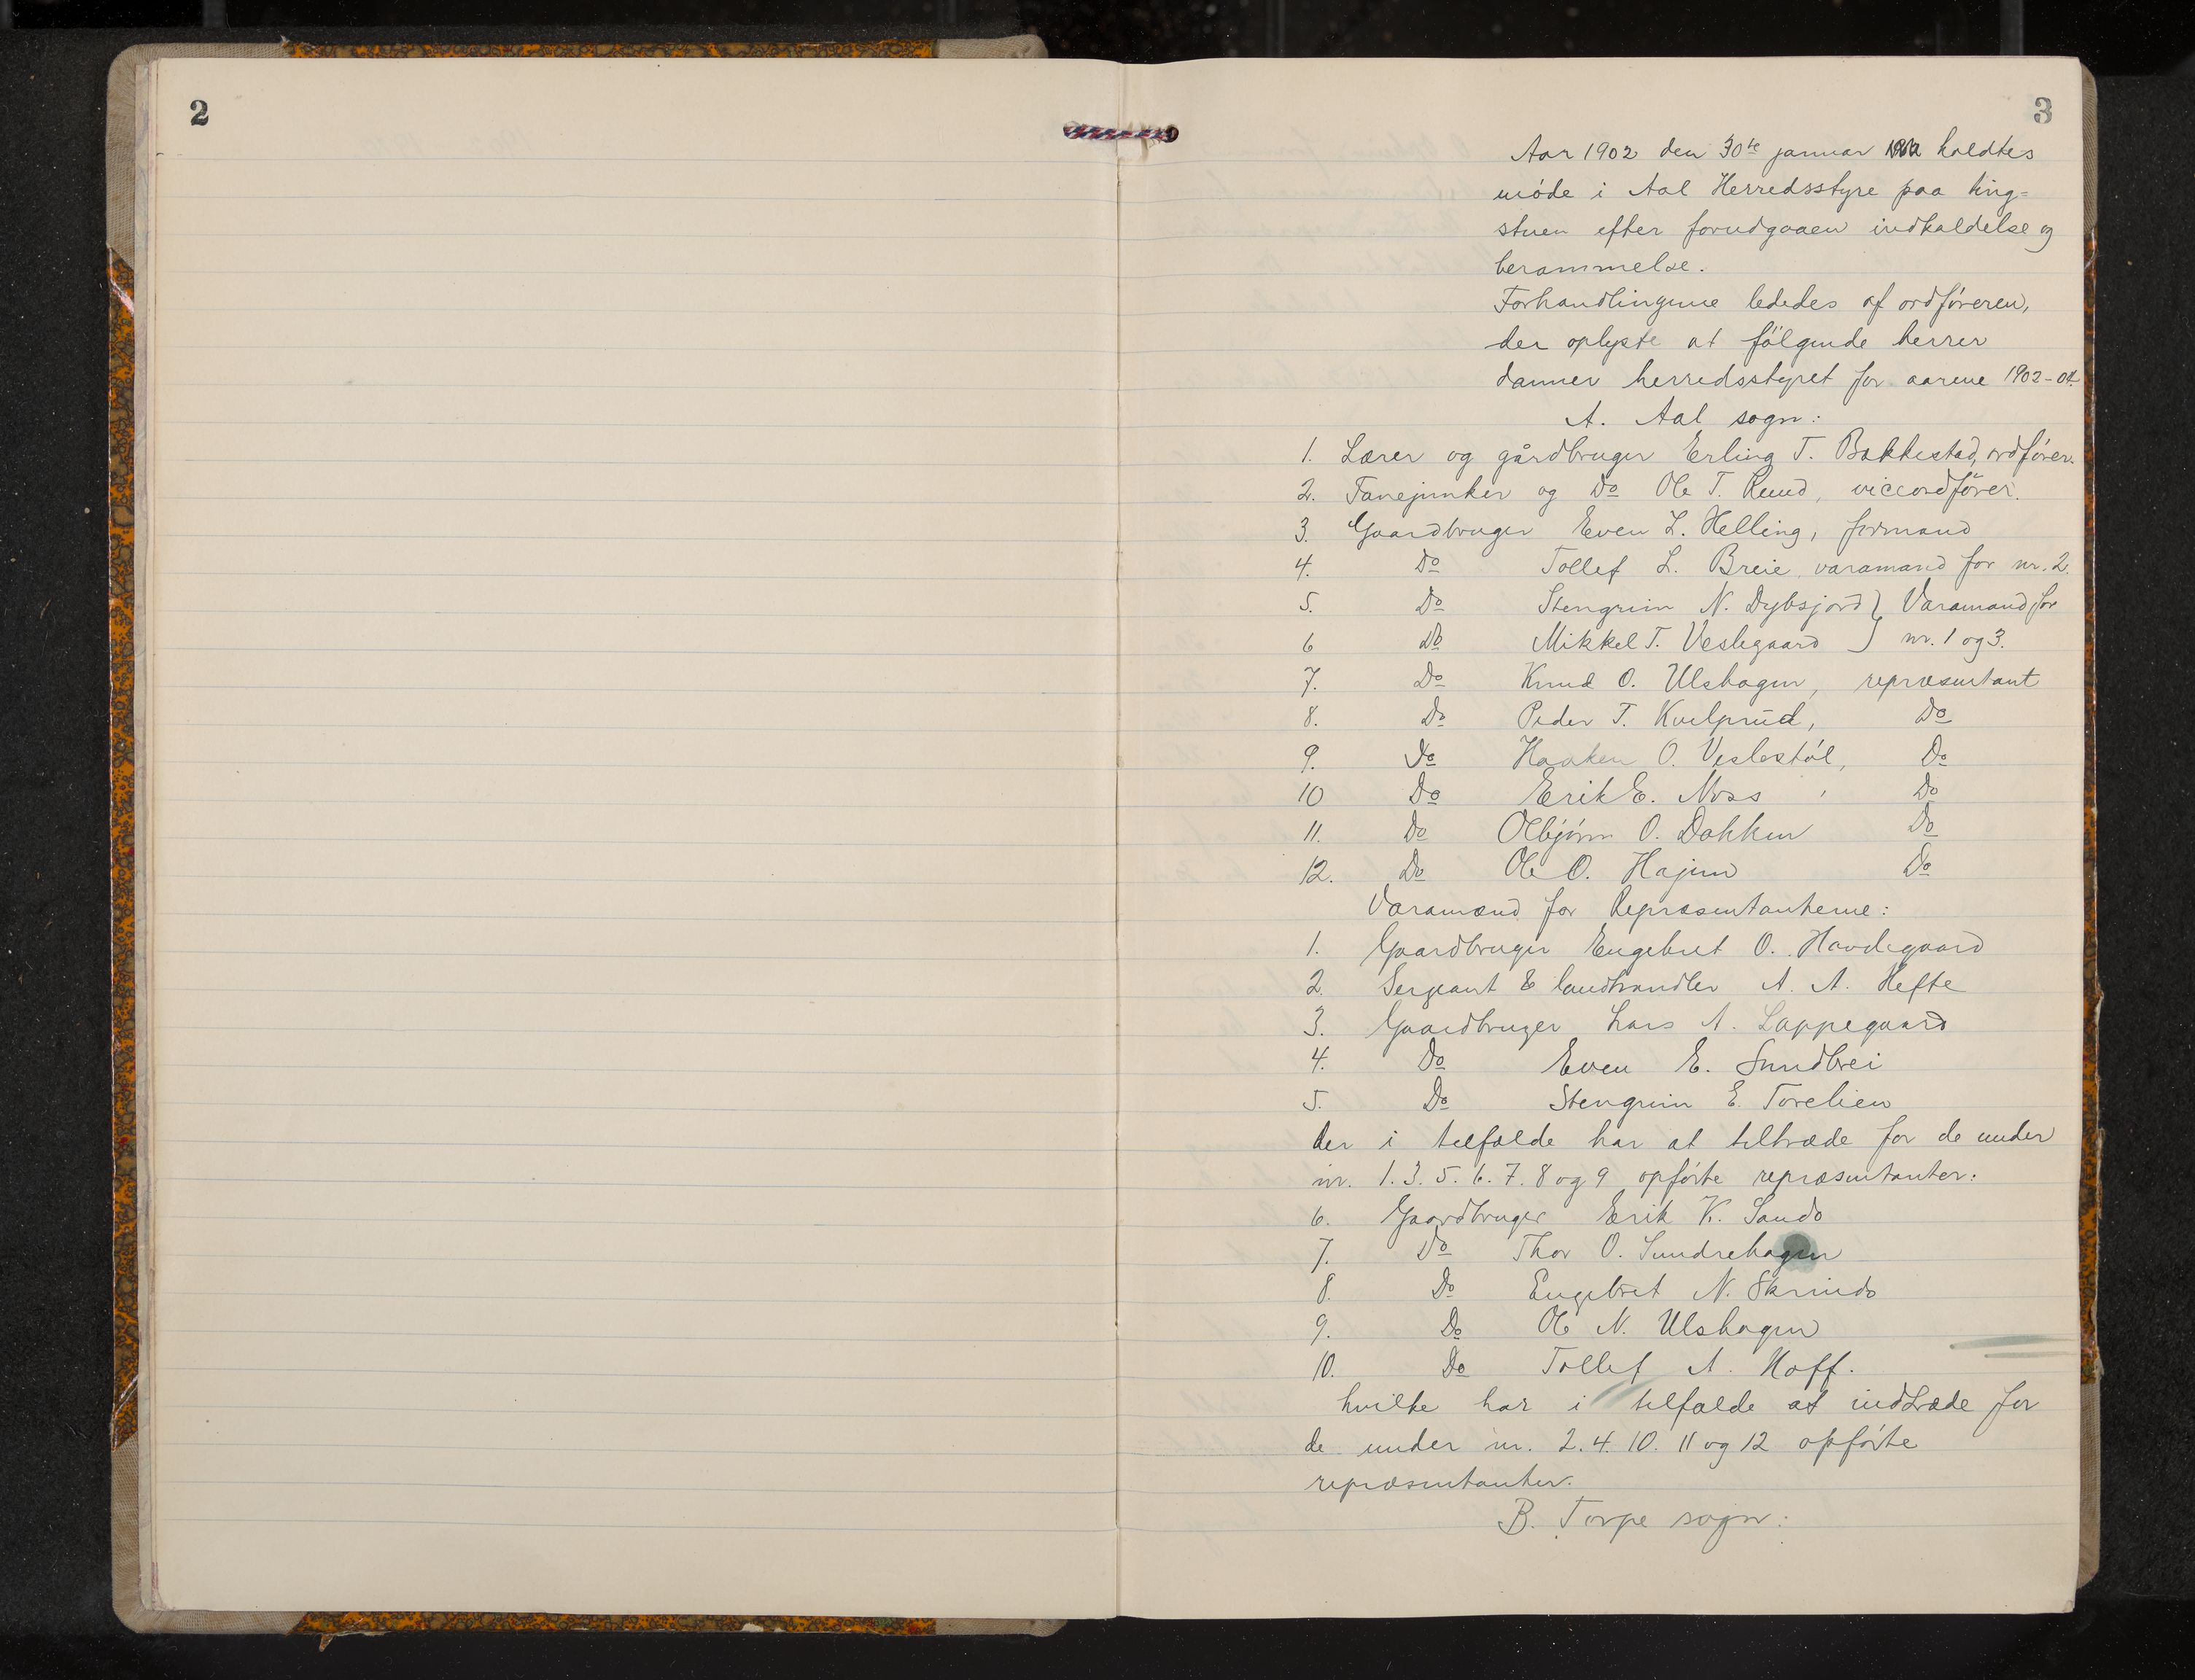 2
3
Aar 1902 den 30te januar holdtes
møde i Aal Herredsstyre paa ting=
stuen efter forudgaaen indkaldelse og
berammelse.
Forhandlingene lededes af ordføreren,
der oplyste at følgende herrer
danner herredsstyret for aarene 1902-04
A. Aal sogn:
1. Lærer og gårdbruger Erling T. Bakkestad, ordfører.
2. Fanejunker og Do Ole T. Ruud, viceordfører.
3. Gaardbruger Even L. Helling, formand
4. Do Tollef L. Breie, varamand for nr. 2.
5. Do Stengrim N. Dybsjord } Varamand for
6 Do Mikkel T. Veslegaard } nr. 1 og 3.
7. Do Knud O. Ulshagen, repræsentant
8. Do Peder T. Kvelprud, Do
9. Do Haaken O. Veslestøl, Do
10 Do Erik E. Noss , Do
11. Do Olbjørn O. Dokken Do
12. Do Ole O. Hajem Do
Varamænd for Repræsentanterne:
1. Gaardbruger Engebret O. Hovdegaard
2. Sergeant & landhandler A. A. Hefte
3. Gaardbruger Lars A. Loppegaard
4. Do Even E. Sundbrei
5. Do Stengrim E. Torelien
der i tilfælde har at tiltræde for de under
nr. 1. 3. 5. 6. 7. 8 og 9 opførte repræsentanter:
6. Gaardbruger Erik K. Sando
7. Do Thor O. Sundrehagen
8. Do Engebret N. Skrindo
9. Do Ole N. Ulshagen
10. Do Tollef A. Hoff.
hvilke har i tilfælde at indtræde for
de under nr. 2. 4. 10. 11 og 12 opførte
repræsentanter.
B. Torpe sogn: